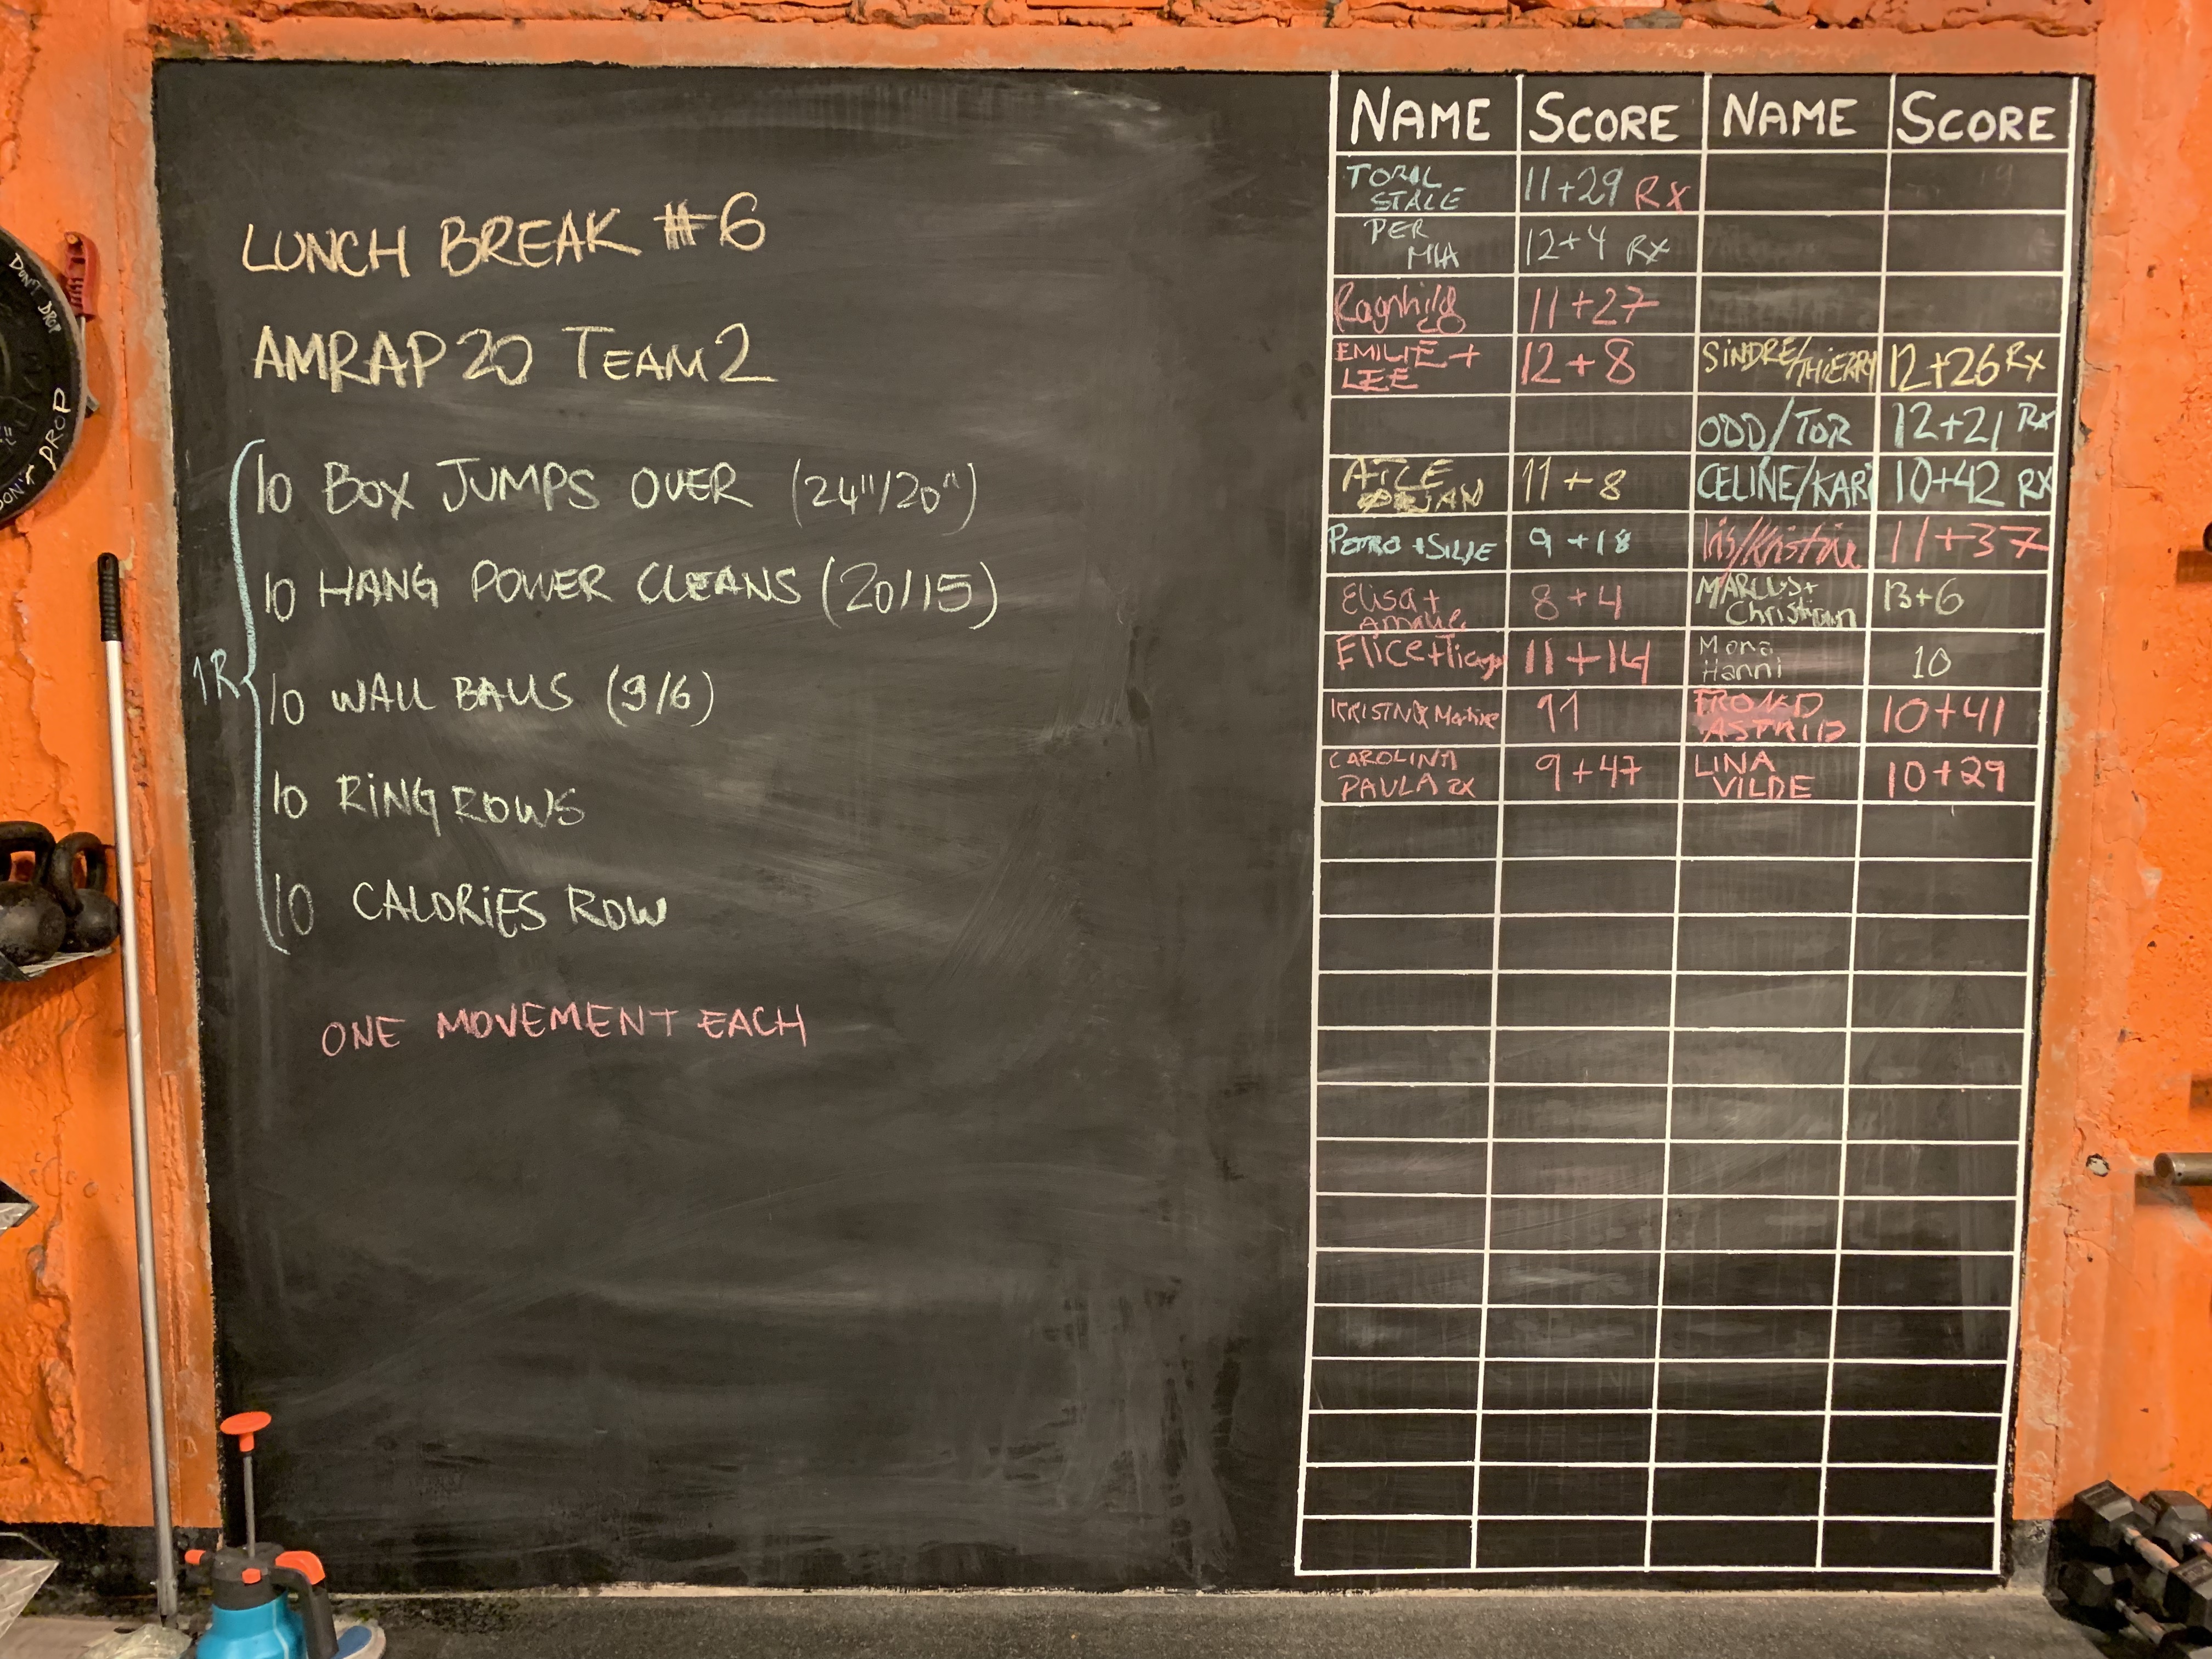 LUNCH BREAK #6
AMRAP 20 TEAM 2
1R
10 BOX JUMPS OVER (24"/20")
10 HANG POWER CLEANS (20/15)
10 WALL BALLS (9/6)
10 RING ROWS
10 CALORIES ROW
ONE MOVEMENT EACH
NAME SCORE NAME SCORE
TORAL
STALE 11+29 RX
PER
MIA 12+4 RX
Ragnhild
CO 11+27
EMILIE +
LEE 12+8 SINDRE/THIERRY 12+26 RX
ODD/TOR 12+21 RX
ATLE
JAN 11+8 CELINE/KARI 10+42 RX
PETRO + SILJE 9+18 Iris/Kristine 11+37
Elisa +
Amalie 8+4 MARCUS +
Christian 13+6
Elice+Tiago 11+14 Mona
Hanni 10
KRISTIN & Martine 11 TROND
ASTRID 10+41
CAROLINA
PAULA RX 9+47 LINA
VILDE 10+29
DON'T DROP
DON'T DROP